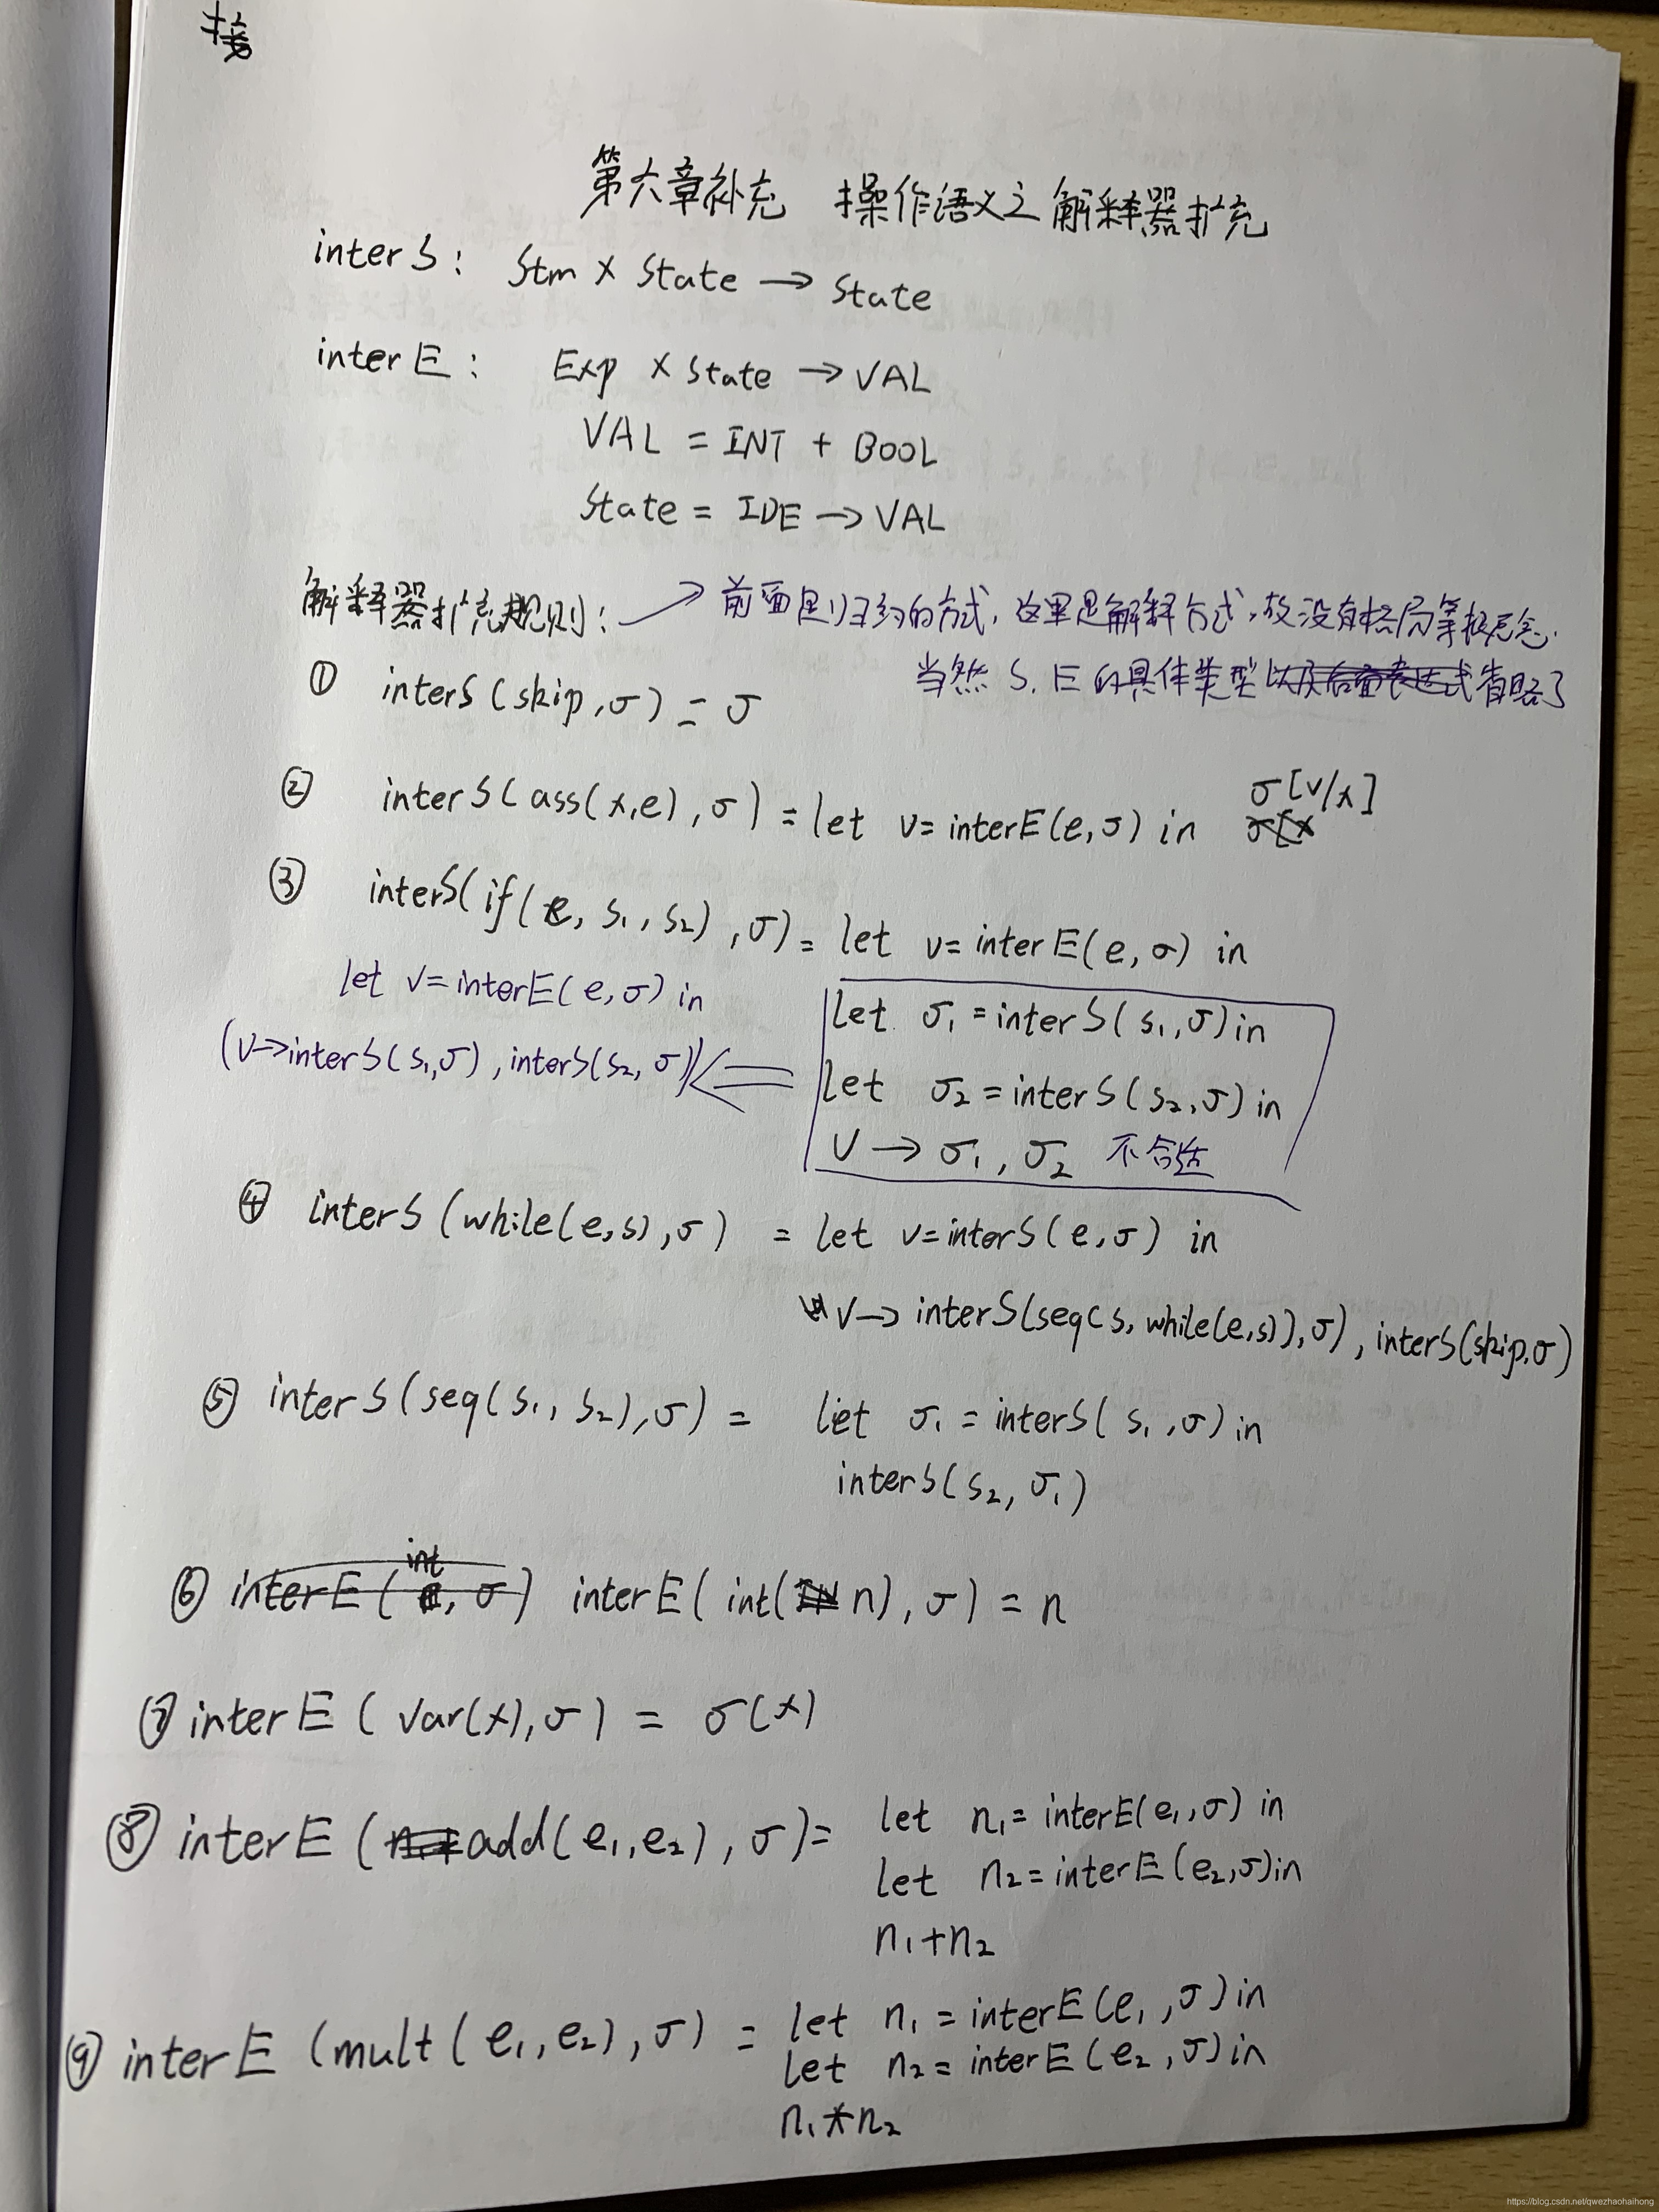 接
第六章补充 操作语义之解释器扩充
interS: Stm × State → State
interE: Exp × State → VAL
VAL = INT + BOOL
State = IDE → VAL
解释器扩充规则: → 前面是归约的方式, 这里是解释方式, 故没有格局等概念.
当然 S, E 的具体类型以及后面表达式省略了
① interS(skip, σ) = σ
② interS(ass(x,e), σ) = let v=interE(e,σ) in σ[v/x]
σ[x
③ interS(if(e, s₁, s₂), σ) = let v=interE(e,σ) in
let v=interE(e,σ) in
(v→interS(s₁,σ), interS(s₂,σ))
let σ₁=interS(s₁,σ) in
let σ₂=interS(s₂,σ) in
v → σ₁, σ₂ 不合适
④ interS(while(e,s),σ) = let v=interS(e,σ) in
v→ interS(seq(s, while(e,s)),σ), interS(skip,σ)
⑤ interS(seq(s₁, s₂),σ) = let σ₁=interS(s₁,σ) in
interS(s₂, σ₁)
int
⑥ interE( , σ) interE(int( n), σ) = n
⑦ interE(var(x),σ) = σ(x)
⑧ interE( add(e₁,e₂), σ)= let n₁=interE(e₁,σ) in
let n₂=interE(e₂,σ)in
n₁+n₂
⑨ interE(mult(e₁,e₂),σ) = let n₁=interE(e₁,σ)in
let n₂=interE(e₂,σ)in
n₁*n₂
https://blog.csdn.net/qwezhaohaihong